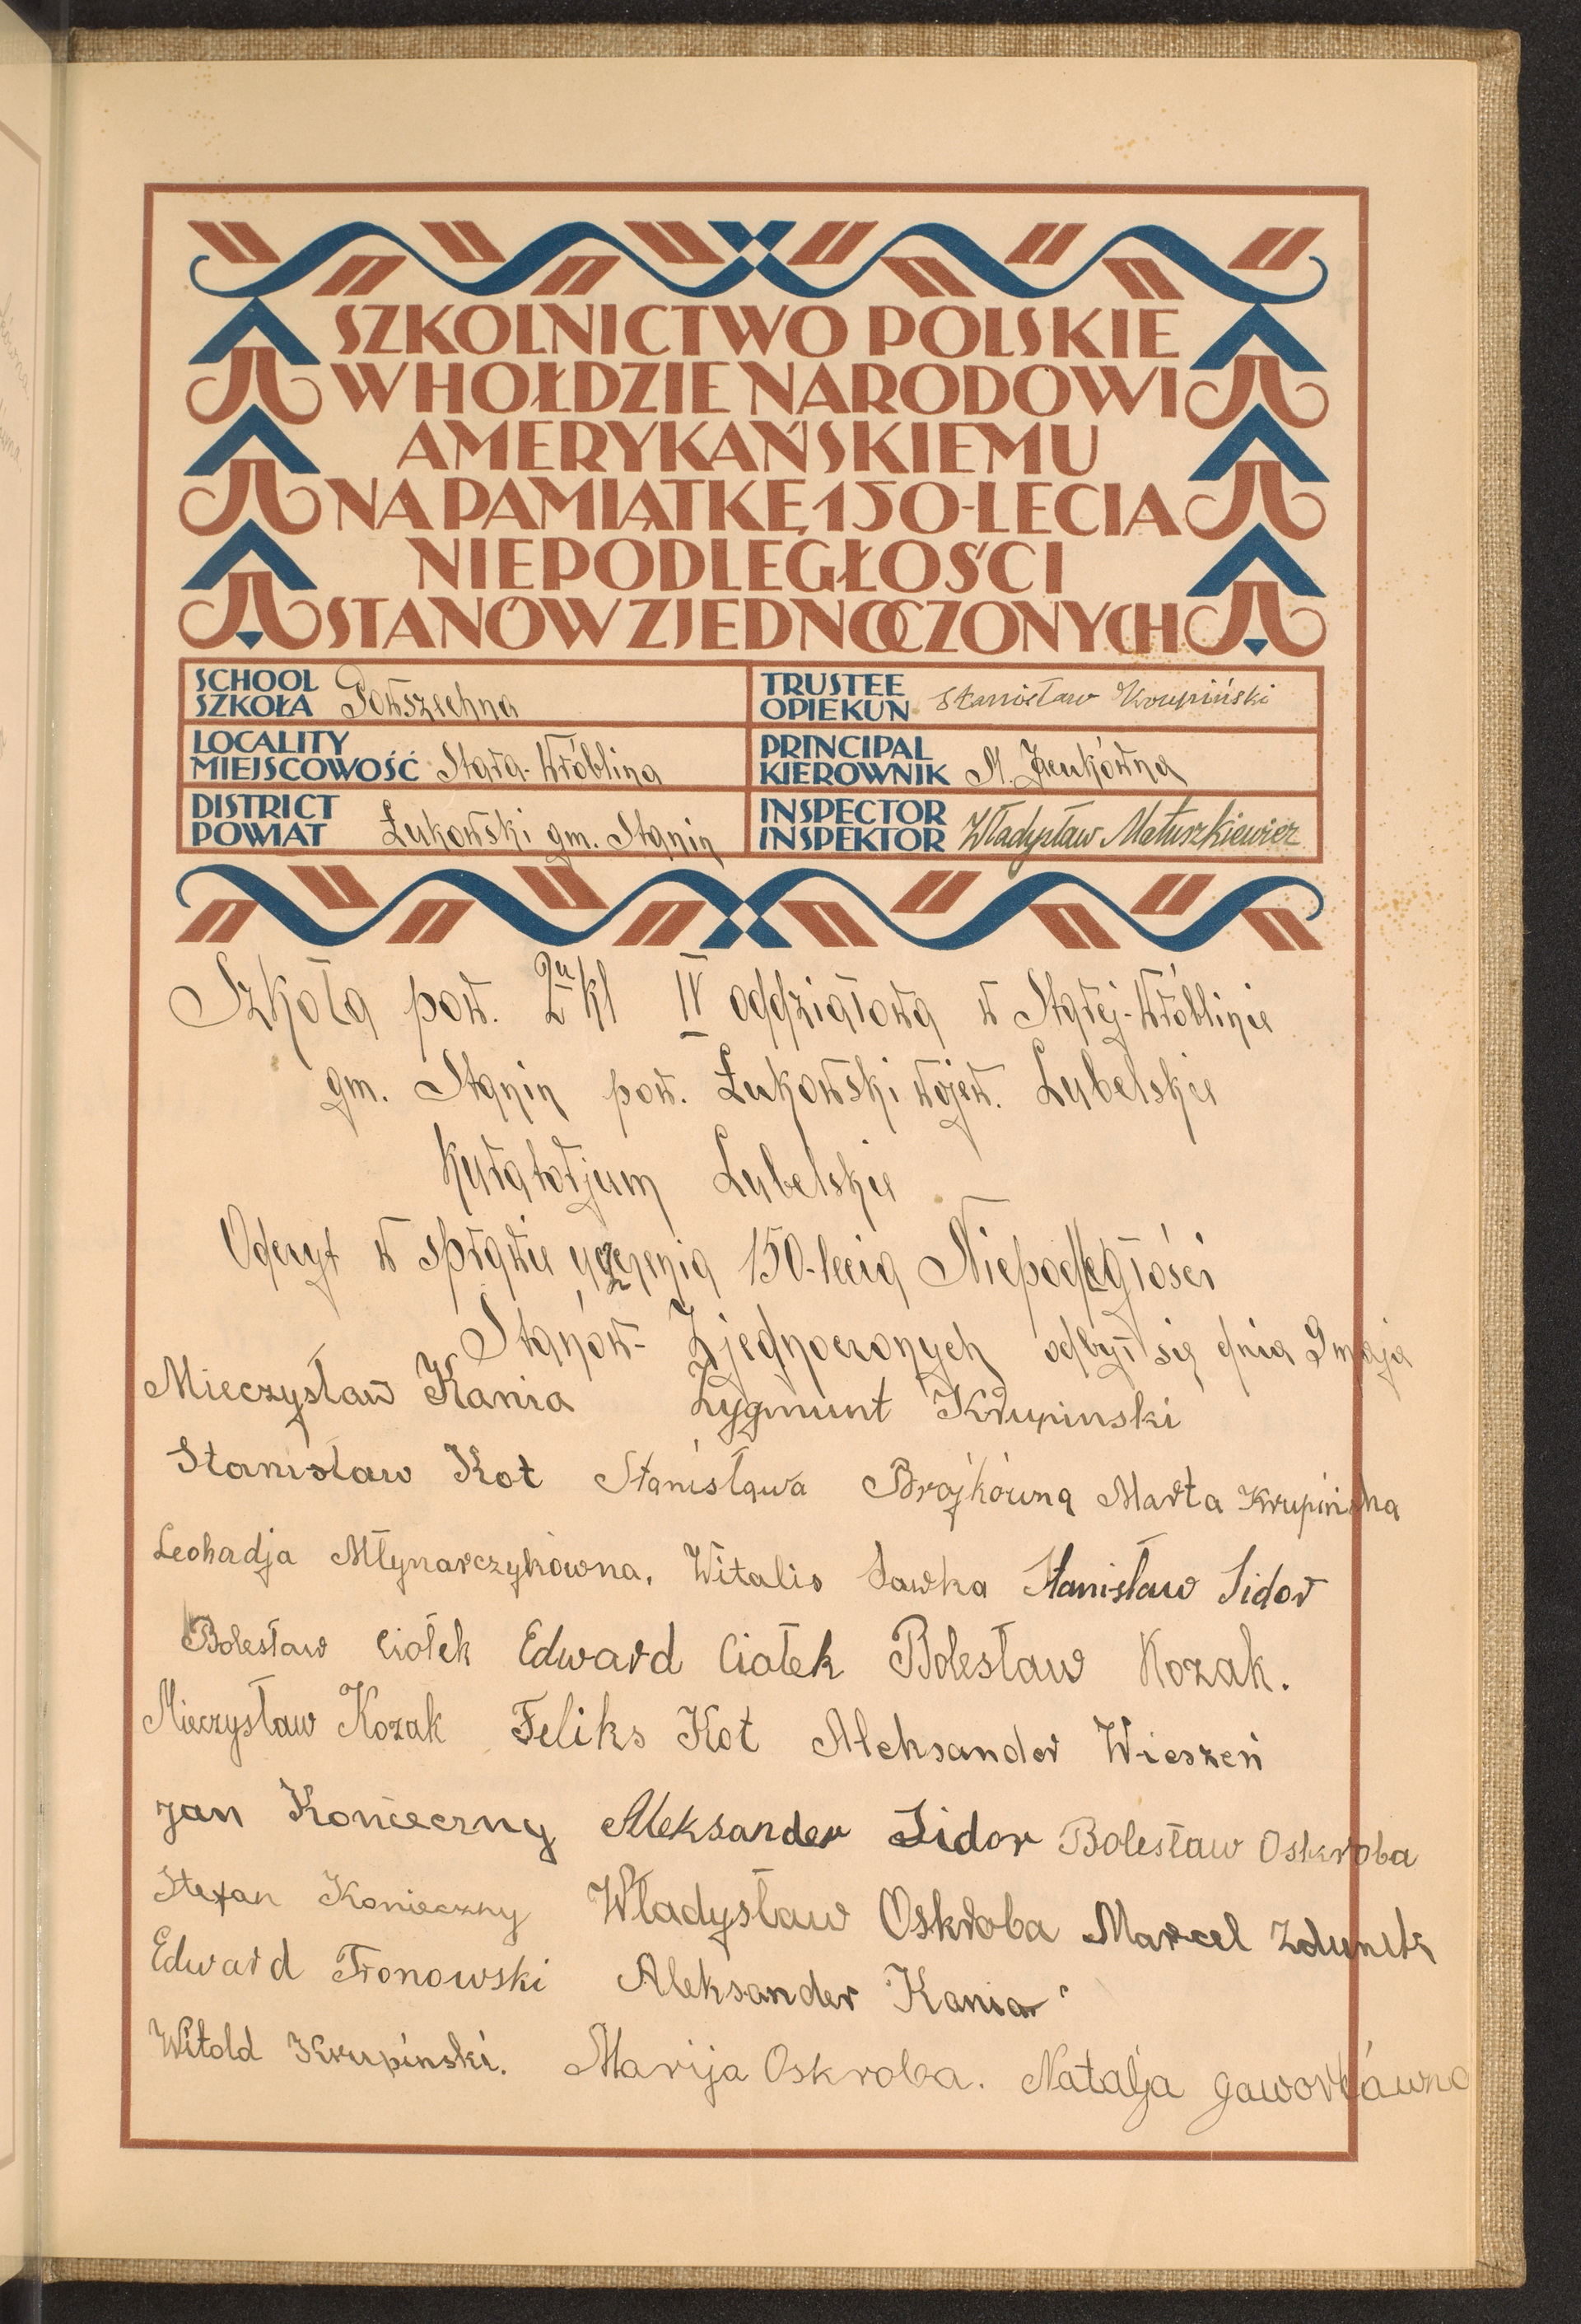 SZKOLNICTWO POLSKIE
W HOŁDZIE NARODOWI
AMERYKAŃSKIEMU
NA PAMIĄTKĘ 150-LECIA
NIEPODLEGŁOŚCI
STANÓW ZJEDNOCZONYCH
SCHOOL
SZKOŁA Powszechna
TRUSTEE
OPIEKUN Stanisław Krupiński
LOCALITY
MIEJSCOWOŚĆ Stara-Wróblina
PRINCIPAL
KIEROWNIK
DISTRICT
POWIAT Łukowski gm. Stanin
INSPECTOR
INSPEKTOR Władysław Matuszkiewicz
Szkoła pow. 2u kl IV oddziałowa w Starej-Wróblinie
gm. Stanin pow. Łukowski wojew. Lubelskie
Kuratorjum Lubelskie
Odczyt w sprawie uczczenia 150-lecia Niepodległości
Stanów- Zjednoczonych odbył się dnia 9 maja
Mieczysław Kania Zygmunt Krupinski
Stanisław Kot Stanisława Brojkówna Marta Krupińska
Leokadja Młynarczykówna. Witalis Sawka Stanisław Sidor
Bolesław Ciołek Edward Ciołek Bolesław Kozak.
Mieczysław Kozak Feliks Kot Aleksander Wieszeń
Jan Konieczny Aleksander Sidor Bolesław Oskroba
Stefan Konieczny Władysław Oskroba Marcel Zdunek
Edward Tronowski Aleksander Kania
Witold Krupinski. Marija Oskroba. Natalja